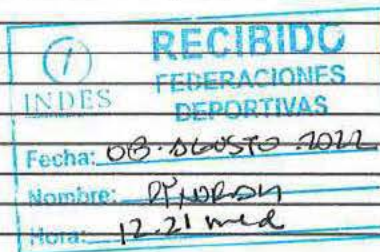 RECIBIDO
FEDERACIONES
INDES
DEPORTIVAS
Fecha: 08·AGOSTO 2022
Nombre:
Hora: 12.21 md